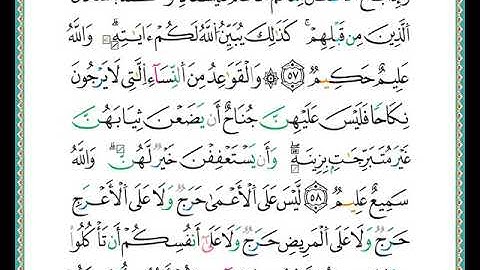 الَّذِينَ مِن قَبْلِهِمْ كَذَٰلِكَ يُبَيِّنُ اللَّهُ لَكُمْ ءَايَـٰتِهِ وَاللَّهُ
عَلِيمٌ حَكِيمٌ ٥٧ وَالْقَوَاعِدُ مِنَ النِّسَاءِ الَّتِي لَا يَرْجُونَ
نِكَاحًا فَلَيْسَ عَلَيْهِنَّ جُنَاحٌ أَن يَضَعْنَ ثِيَابَهُنَّ
غَيْرَ مُتَبَرِّجَـٰتٍ بِزِينَةٍ وَأَن يَسْتَعْفِفْنَ خَيْرٌ لَّهُنَّ وَاللَّهُ
سَمِيعٌ عَلِيمٌ ٥٨ لَّيْسَ عَلَى الْأَعْمَىٰ حَرَجٌ وَلَا عَلَى الْأَعْرَجِ
حَرَجٌ وَلَا عَلَى الْمَرِيضِ حَرَجٌ وَلَا عَلَىٰ أَنفُسِكُمْ أَن تَأْكُلُوا